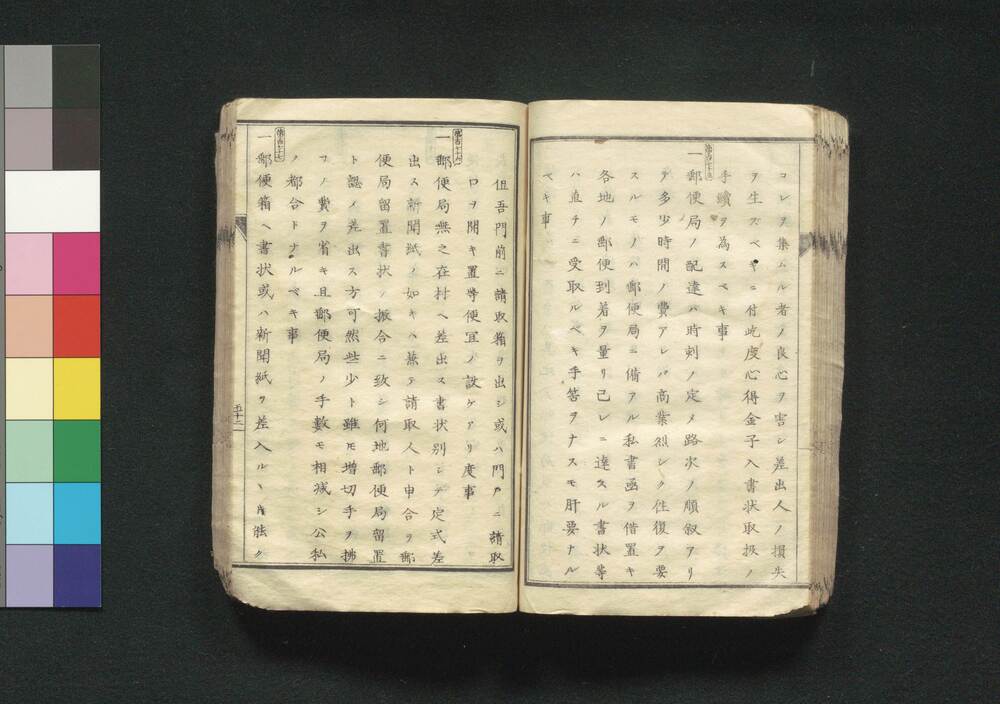 コレヲ集ムル者ノ良心ヲ害シ差出人ノ損失
ヲ生ズベキニ付屹度心得金子入書状取扱ノ
手續ヲ為スベキ事
第百七十五
一郵便局ノ配達ハ時刻ノ定メ路次ノ順叙アリ
テ多少時間ノ費アレバ商業烈シク徃復ヲ要
スルモノハ郵便局ニ備アル私書函ヲ借置キ
各地ノ郵便到着ヲ量リ己レニ達スル書状等
ハ直チニ受取ルベキ手筈ヲナスモ肝要ナル
ベキ事
但吾門前ニ請取箱ヲ出シ或ハ門戸ニ請取
口ヲ開キ置等便宜ノ設ケアリ度事
第百七十六
一郵便局無之在村ヘ差出ス書状別シテ定式差
出ス新聞紙ノ如キハ兼テ請取人ト申合ヲ郵
便局留置書状ノ振合ニ致シ何地郵便局留置
ト認メ差出ス方可然些少ト雖モ増切手ヲ拂
フノ費ヲ省キ且郵便局ノ手數モ相減シ公私
ノ都合トナルベキ事
第百七十七
一郵便箱ヘ書状或ハ新聞紙ヲ差入ルヽ片能ク
五十二